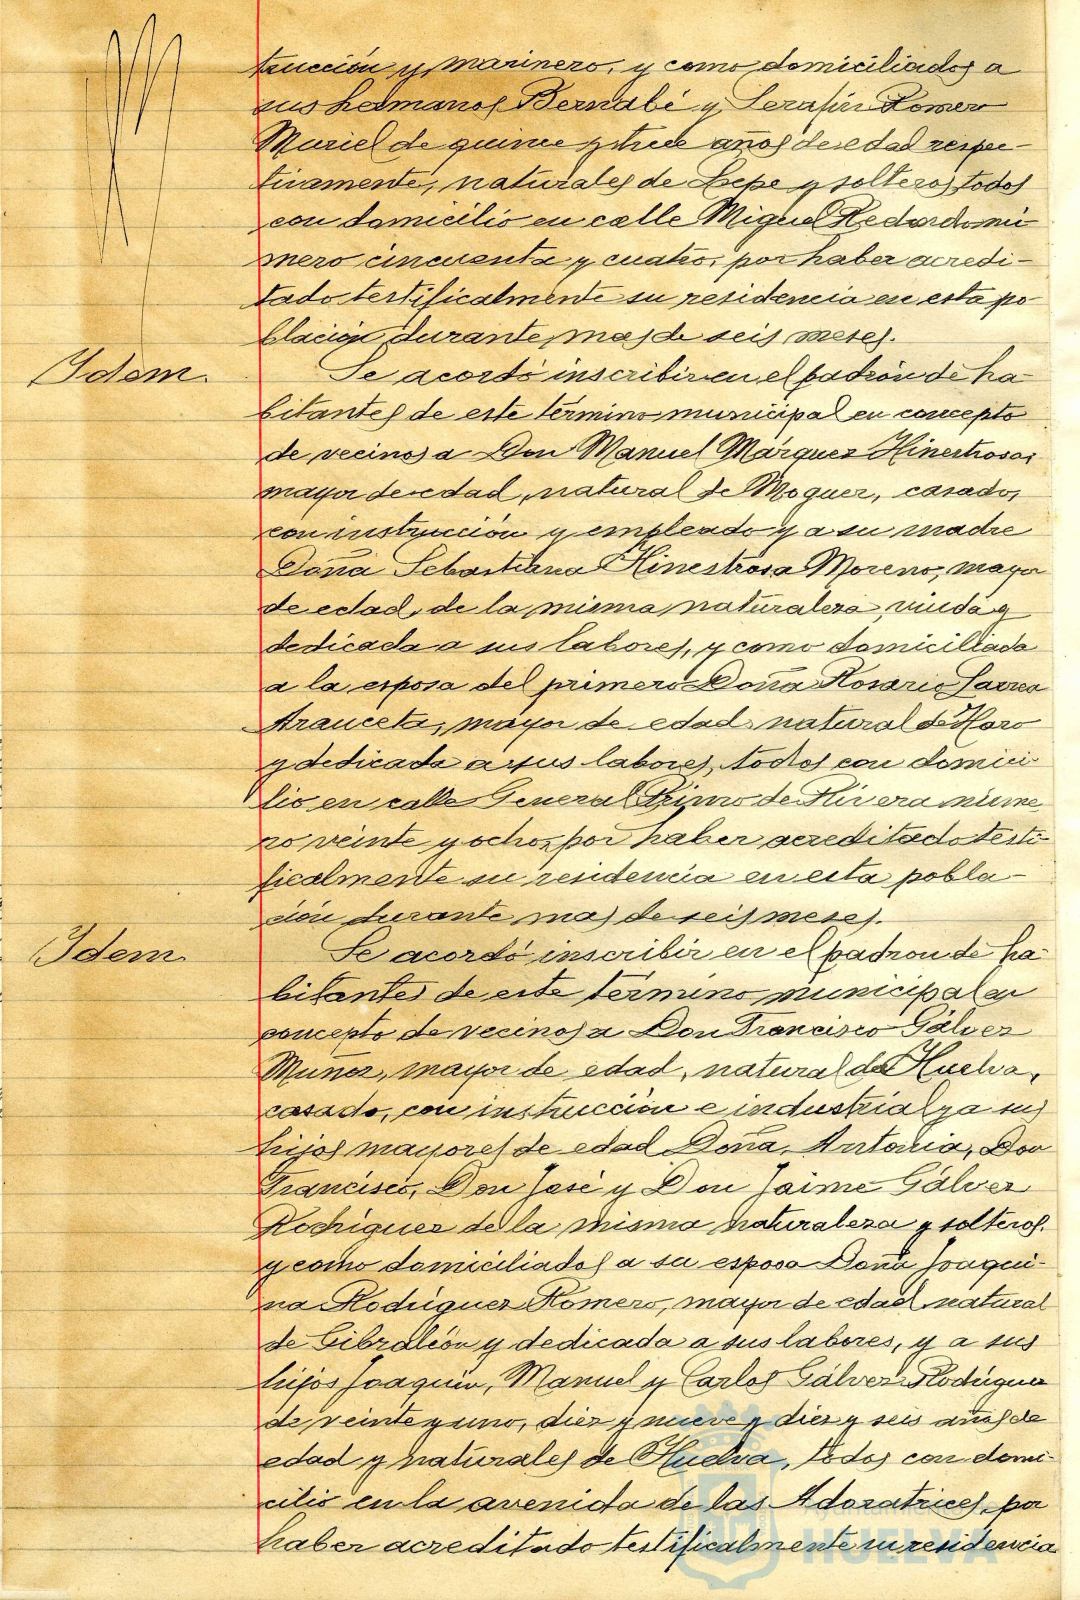 trucción y marinero, y como domiciliados a
sus hermanos Bernabé y Serafín Romero
Muriel de quince y trece años de edad respec-
tivamente, naturales de Lepe y solteros, todos
con domicilio en calle Miguel Redondo nú-
mero cincuenta y cuatro, por haber acredi-
tado testificalmente su residencia en esta po-
blación durante mas de seis meses.
Idem. Se acordó inscribir en el padrón de ha-
bitantes de este término municipal en concepto
de vecinos a Don Manuel Márquez Hinestrosa,
mayor de edad, natural de Moguer, casado,
con instrucción y empleado y a su madre
Doña Sebastiana Hinestrosa Moreno, mayor
de edad, de la misma naturaleza, viuda y
dedicada a sus labores, y como domiciliada
a la esposa del primero Doña Rosario Larrea
Arauceta, mayor de edad, natural de Haro
y dedicada a sus labores, todos con domici-
lio en calle General Primo de Rivera núme-
ro veinte y ocho, por haber acreditado testi-
ficalmente su residencia en esta pobla-
ción durante mas de seis meses.
Idem. Se acordó inscribir en el padron de ha-
bitantes de este término municipal en
concepto de vecinos a Don Francisco Gálvez
Muñoz, mayor de edad, natural de Huelva,
casado, con instrucción e industrial y a sus
hijos mayores de edad Doña Antonia, Don
Francisco, Don José y Don Jaime Gálvez
Rodríguez de la misma naturaleza y solteros.
y como domiciliados a su esposa Doña Joaqui-
na Rodríguez Romero, mayor de edad, natural
de Gibraleón y dedicada a sus labores, y a sus
hijos Joaquín, Manuel y Carlos Gálvez Rodríguez
de veinte y uno, diez y nueve y diez y seis años de
edad y naturales de Huelva, todos con domi-
cilio en la avenida de las Adoratrices, por
haber acreditado testificalmente su residencia
Ayuntamiento de
HUELVA